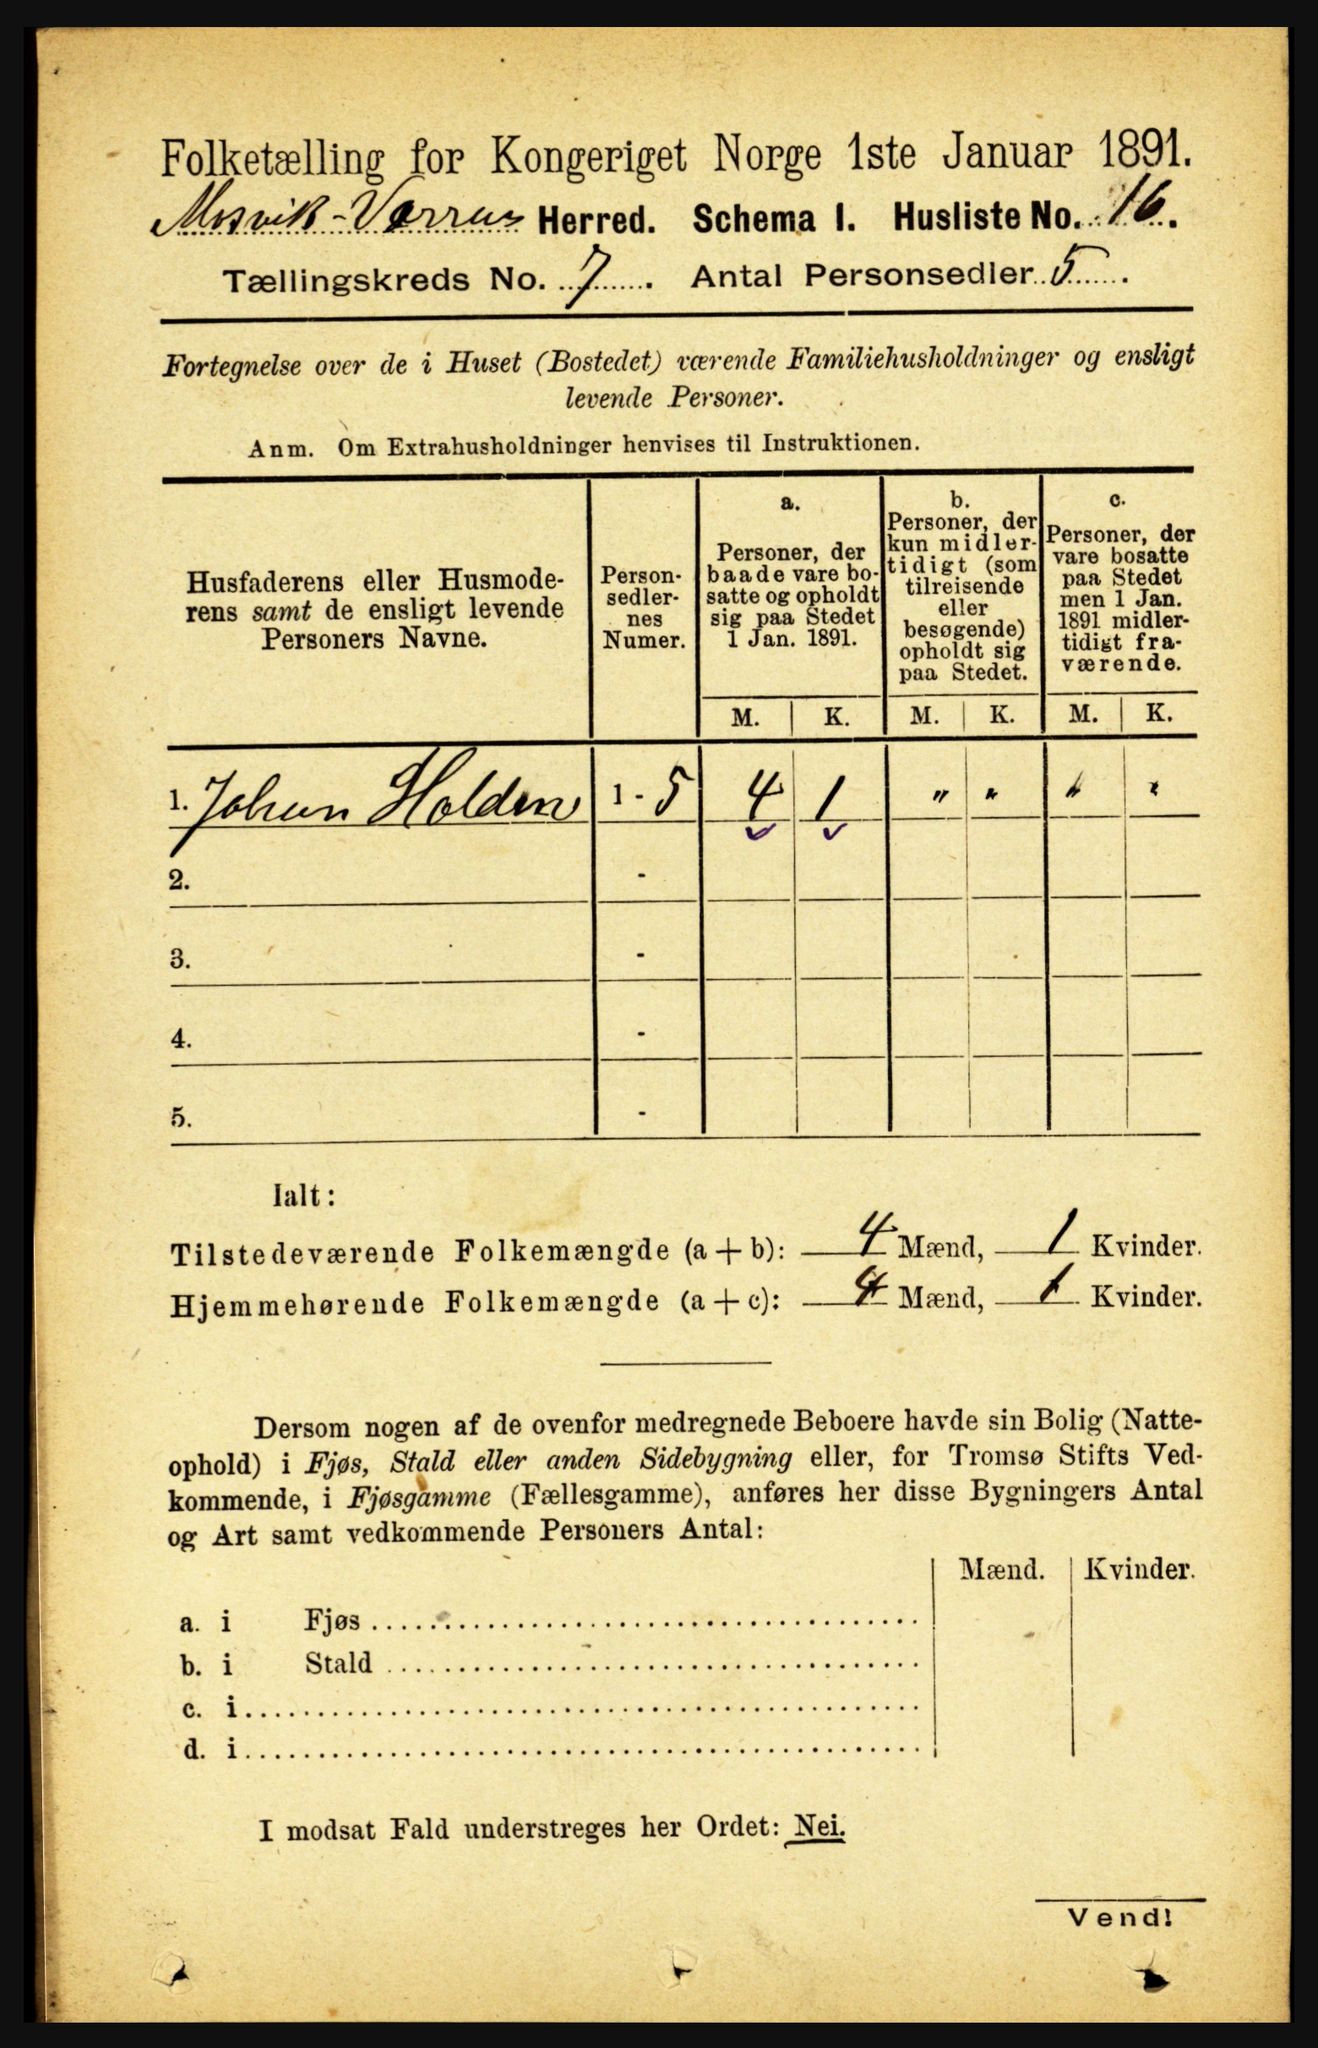 Folketælling for Kongeriget Norge 1ste Januar 1891.
Mosvik-Værran Herred. Schema I. Husliste No. 16.
Tællingskreds No. 7. Antal Personsedler 5.
Fortegnelse over de i Huset (Bostedet) værende Familiehusholdninger og ensligt
levende Personer.
Anm. Om Extrahusholdninger henvises til Instruktionen.
Husfaderens eller Husmode-
rens samt de ensligt levende
Personers Navne.
Person-
sedler-
nes
Numer.
a.
Personer, der
baade vare bo-
satte og opholdt
sig paa Stedet
1 Jan. 1891.
b.
Personer, der
kun midler-
tidigt (som
tilreisende
eller
besøgende)
opholdt sig
paa Stedet.
c.
Personer, der
vare bosatte
paa Stedet
men 1 Jan.
1891 midler-
tidigt fra-
værende.
M. K. M. K. M. K.
1. Johan Holden 1-5 4 1 " " " "
2. -
3. -
4. -
5. -
Ialt:
Tilstedeværende Folkemængde (a+b): 4 Mænd, 1 Kvinder.
Hjemmehørende Folkemængde (a+c): 4 Mænd, 1 Kvinder.
Dersom nogen af de ovenfor medregnede Beboere havde sin Bolig (Natte-
ophold) i Fjøs, Stald eller anden Sidebygning eller, for Tromsø Stifts Ved-
kommende, i Fjøsgamme (Fællesgamme), anføres her disse Bygningers Antal
og Art samt vedkommende Personers Antal:
Mænd. Kvinder.
a. i Fjøs
b. i Stald
c. i
d. i
I modsat Fald understreges her Ordet: Nei.
Vend!